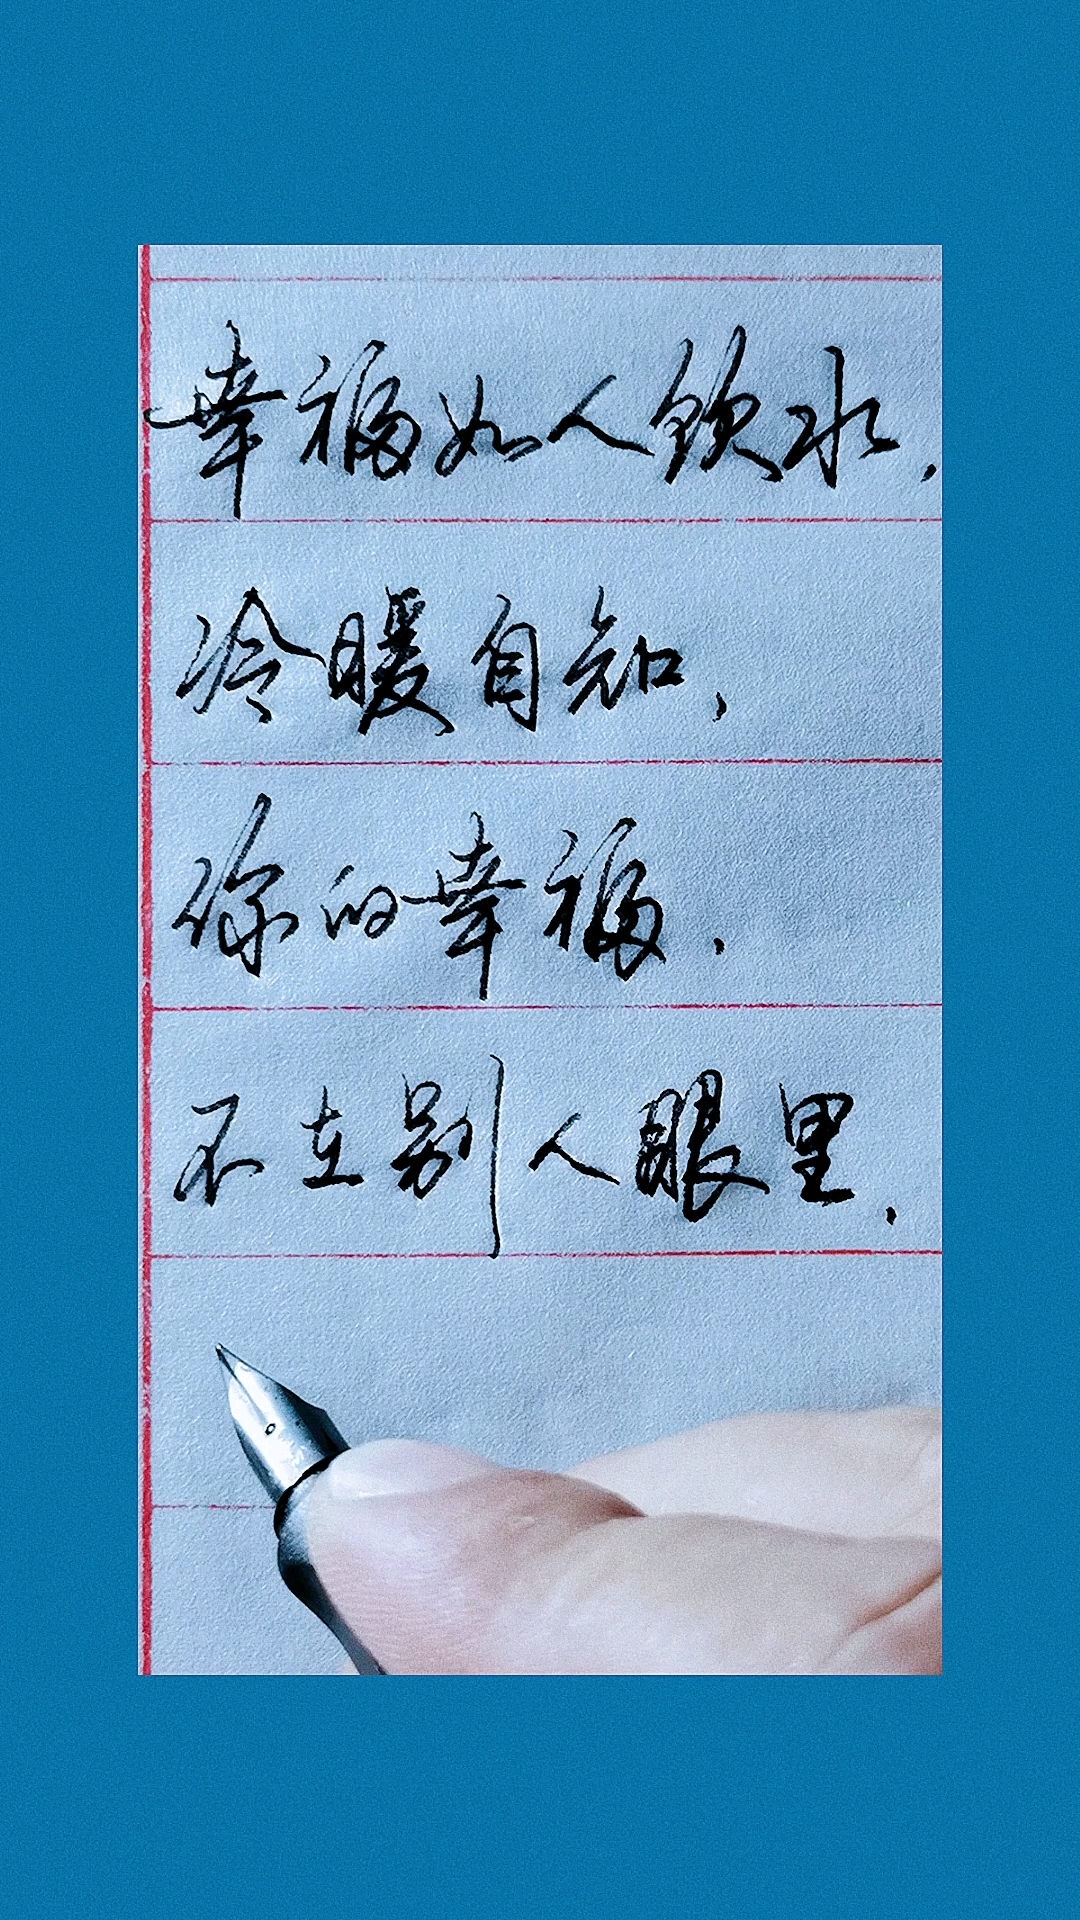 幸福如人饮水，
冷暖自知，
你的幸福，
不在别人眼里，